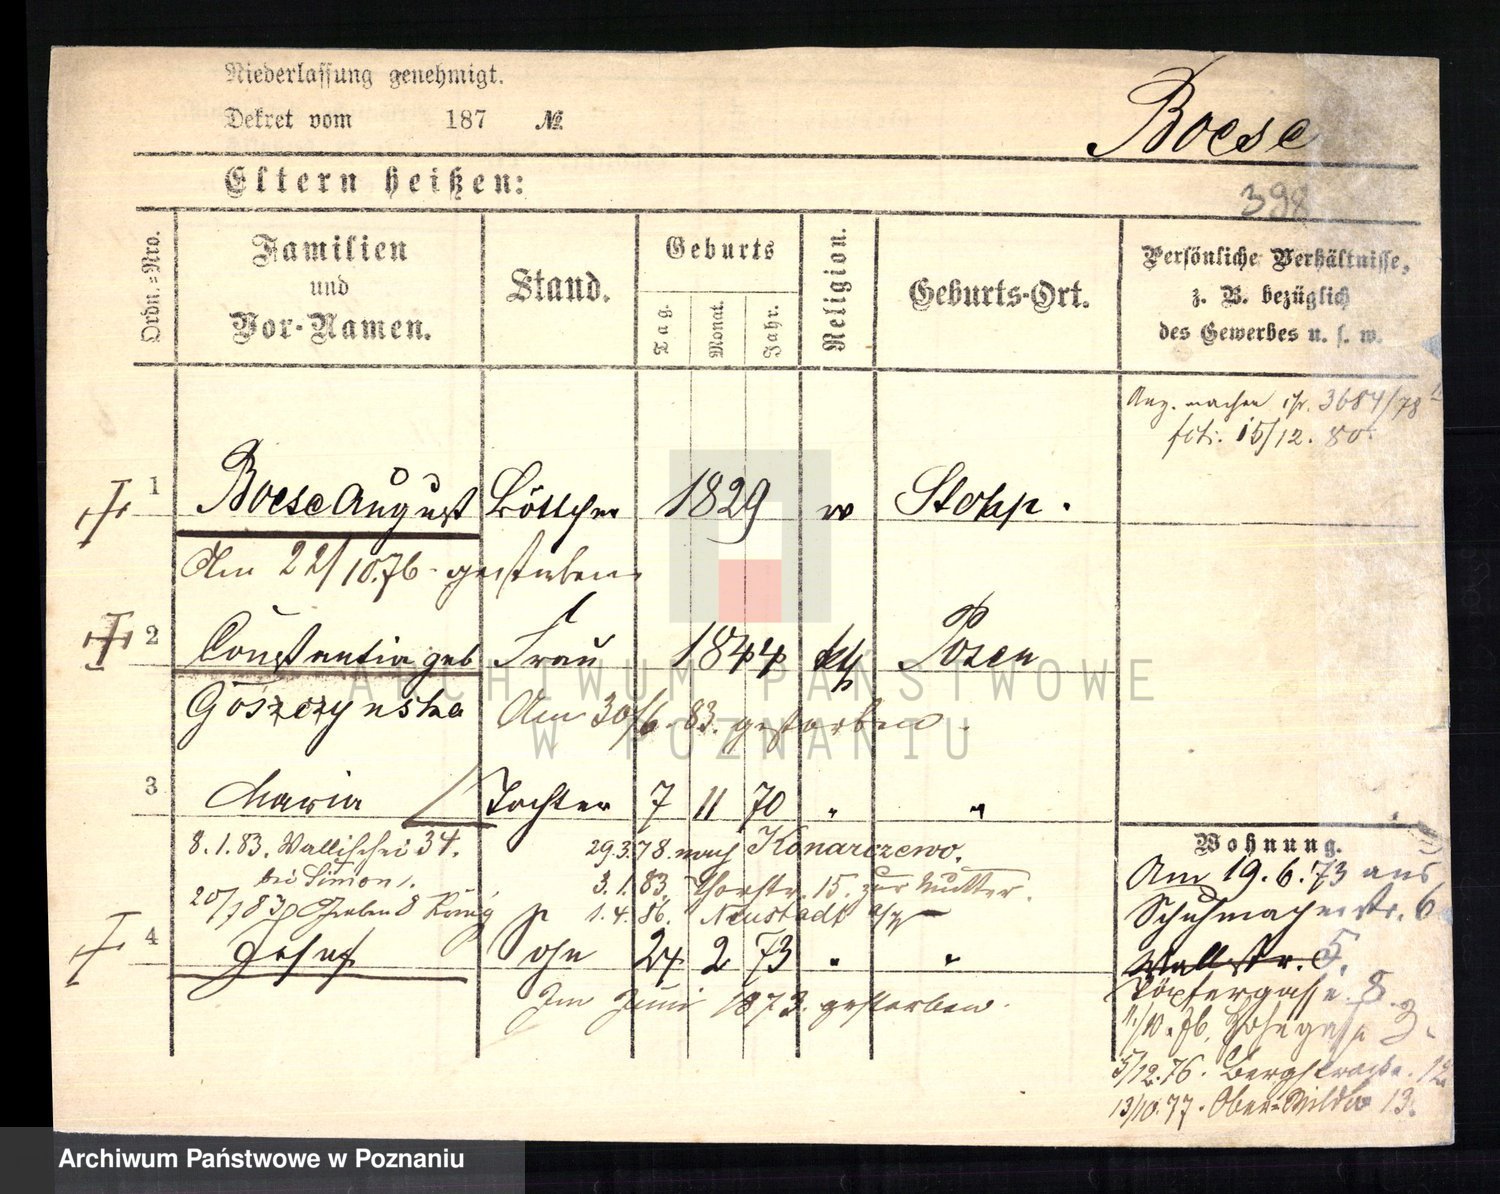 Niederlassung genehmigt.
Dekret vom 187 №
Boese
Eltern heißen:
398
Ordn.=Nro.
Familien
und
Vor-Namen.
Stand.
Geburts
Tag.
Monat.
Jahr.
Religion.
Geburts-Ort.
Persönliche Verhältnisse,
z. B. bezüglich
des Gewerbes u. s. w.
3684/78
15/12. 80.
1 Boese August Böttcher 1829 w
Am 22/10.76 gestorben
2 Constantia geb Frau 1844 kth Posen
Goszczynska Am 30/6. 83. gestorben.
3 Maria Tochter 7 11 70 " "
8.1.83. Wallischei 34. 29.3.78. nach Konarczewo.
bei Simon. 3.1.83. Thorstr. 15. zur Mutter.
20/7 83 1.4.86. Neustadt a/W
4 Josef Sohn 24 2 73 " "
Im Juni 1873. gestorben.
Wohnung.
Am 19.6.73 aus
Schuhmacherstr. 6
Wallstr. 5.
Töpfergasse 8.
11/10.76. 3.
5/12.76. Bergstrasse. 12
13/10.77. Ober-Wilda 13.
ARCHIWUM PAŃSTWOWE
W POZNANIU
Archiwum Państwowe w Poznaniu